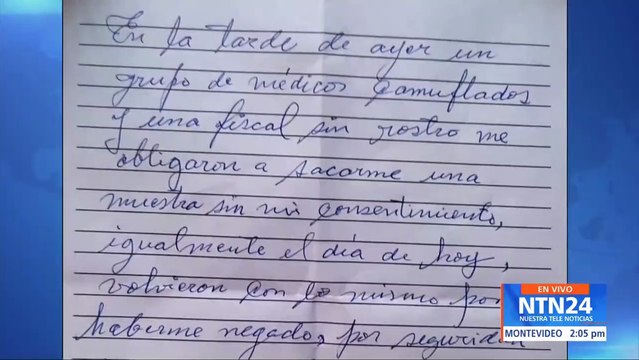 En la tarde de ayer un
grupo de médicos camuflados
y una fiscal sin rostro me
obligaron a sacarme una
muestra sin mi consentimiento,
igualmente el día de hoy,
volvieron con lo mismo por
haberme negado, por seguridad
EN VIVO
NTN24
NUESTRA TELE NOTICIAS
MONTEVIDEO 2:05 pm